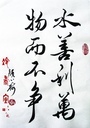 水善利萬
物而不争